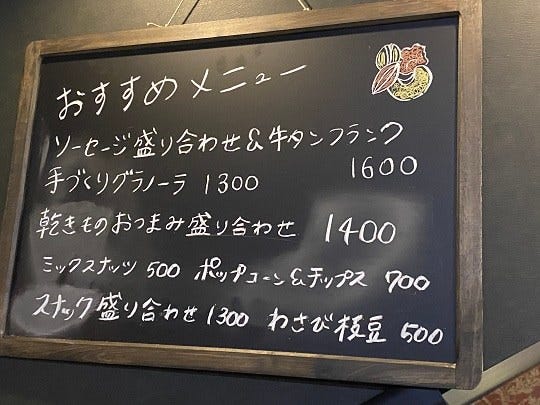 おすすめメニュー
ソーセージ盛り合わせ&牛タンフランク
1600
手づくりグラノーラ 1300
乾きものおつまみ盛り合わせ 1400
ミックスナッツ 500 ポップコーン&チップス 700
スナック盛り合わせ 1300 わさび枝豆 500